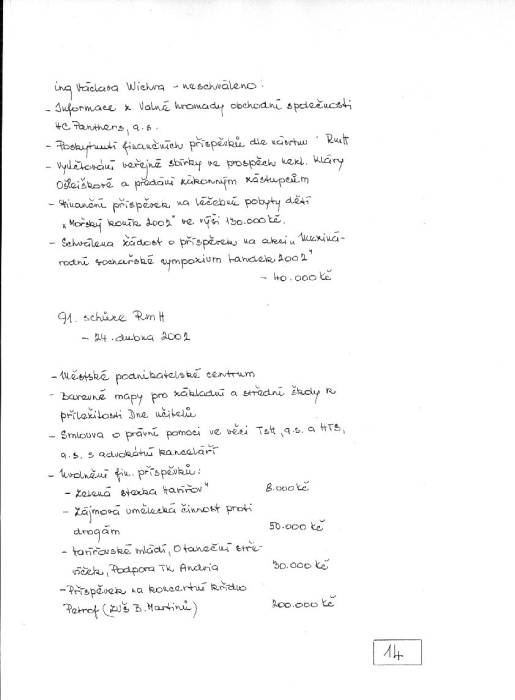 ing Václava Wichra - neschváleno:
- Informace z Valné hromady obchodní společnosti
HC Panthers, a.s.
- Poskytnutí finančních příspěvků dle návrhu RmH
- Vyúčtování veřejné sbírky ve prospěch nezl. Kláry
a předání zákonným zástupcům
- Finanční příspěvek na léčebné pobyty dětí
„Mořský koník 2002" ve výši 130.000 kč.
- Schválena žádost o příspěvek na akci „Meziná-
rodní sochařské sympozium Landek 2002"
- 40.000 Kč
91. schůze RmH
- 24. dubna 2002
- Městské podnikatelské centrum
- Barevné mapy pro základní a střední školy k
příležitosti Dne učitelů
- Smlouva o právní pomoci ve věci TSH, a.s. a HTS,
a.s. s advokátní kanceláří
- Uvolnění fin. příspěvků:
- Zelená stezka Havířov" 8.000 Kč
- Zájmová umělecká činnost proti
drogám 50.000 Kč
- Havířovské mládí, O taneční stře-
víček, Podpora TK Andria 30.000 Kč
- Příspěvek na koncertní křídlo
Petrof (ZUŠ B. Martinů) 200.000 Kč
14